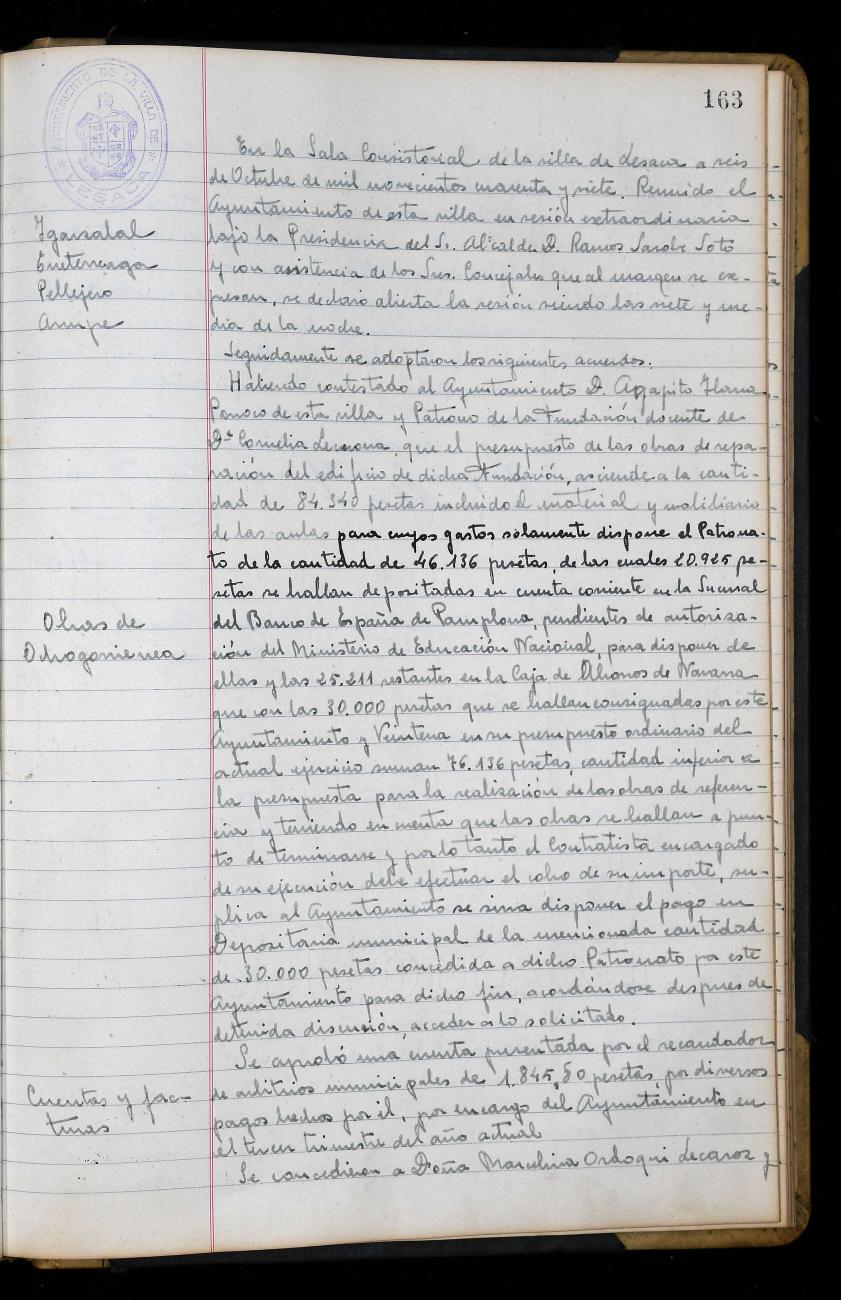 163
AYUNTAMIENTO DE LA VILLA DE
LESACA
En la Sala Consistorial de la villa de Lesaca a seis
de Octubre de mil novecientos cuarenta y siete. Reunido el
Ayuntamiento de esta villa en sesión extraordinaria
bajo la Presidencia del Sr. Alcalde D. Ramos Sarobe Soto
y con asistencia de los Sres. Concejales que al margen se ex-
presan, se declaró abierta la sesión siendo las siete y me-
dia de la noche.
Igarzabal
Endeneaga
Pellejero
Seguidamente se adoptaron los siguientes acuerdos:
Habiendo contestado al Ayuntamiento D. Agapito
Párroco de esta villa y Patrono de la Fundación docente de
Dª Cornelia Lecuona, que el presupuesto de las obras de repa-
ración del edificio de dicha Fundación, asciende a la canti-
dad de 84.340 pesetas incluido el material y mobiliario
de las aulas para cuyos gastos solamente dispone el Patrona-
to de la cantidad de 46.136 pesetas, de las cuales 20.925 pe-
setas se hallan depositadas en cuenta corriente en la Sucursal
del Banco de España de Pamplona, pendientes de autoriza-
ción del Ministerio de Educación Nacional, para disponer de
ellas y las 25.211 restantes en la Caja de Ahorros de Navarra
que con las 30.000 pesetas que se hallan consignadas por este
Ayuntamiento y Veintena en su presupuesto ordinario del
actual ejercicio suman 76.136 pesetas, cantidad inferior a
la presupuesta para la realización de las obras de referen-
cia y teniendo en cuenta que las obras se hallan a pun-
to de terminarse y por lo tanto el Contratista encargado
de su ejecución debe efectuar el cobro de su importe, su-
plica al Ayuntamiento se sirva disponer el pago en
Depositaria municipal de la mencionada cantidad
de 30.000 pesetas concedida a dicho Patronato por este
Ayuntamiento para dicho fin, acordándose despues de
detenida discusión, acceder a lo solicitado.
Obras de
Ochogorrienea
Se aprobó una cuenta presentada por el recaudador
de arbitrios municipales de 1.845,80 pesetas, por diversos
pagos hechos por él, por encargo del Ayuntamiento en
el tercer trimestre del año actual
Cuentas y fac-
turas
Se concedieron a Doña Marcelina Ordoqui Lecaroz y